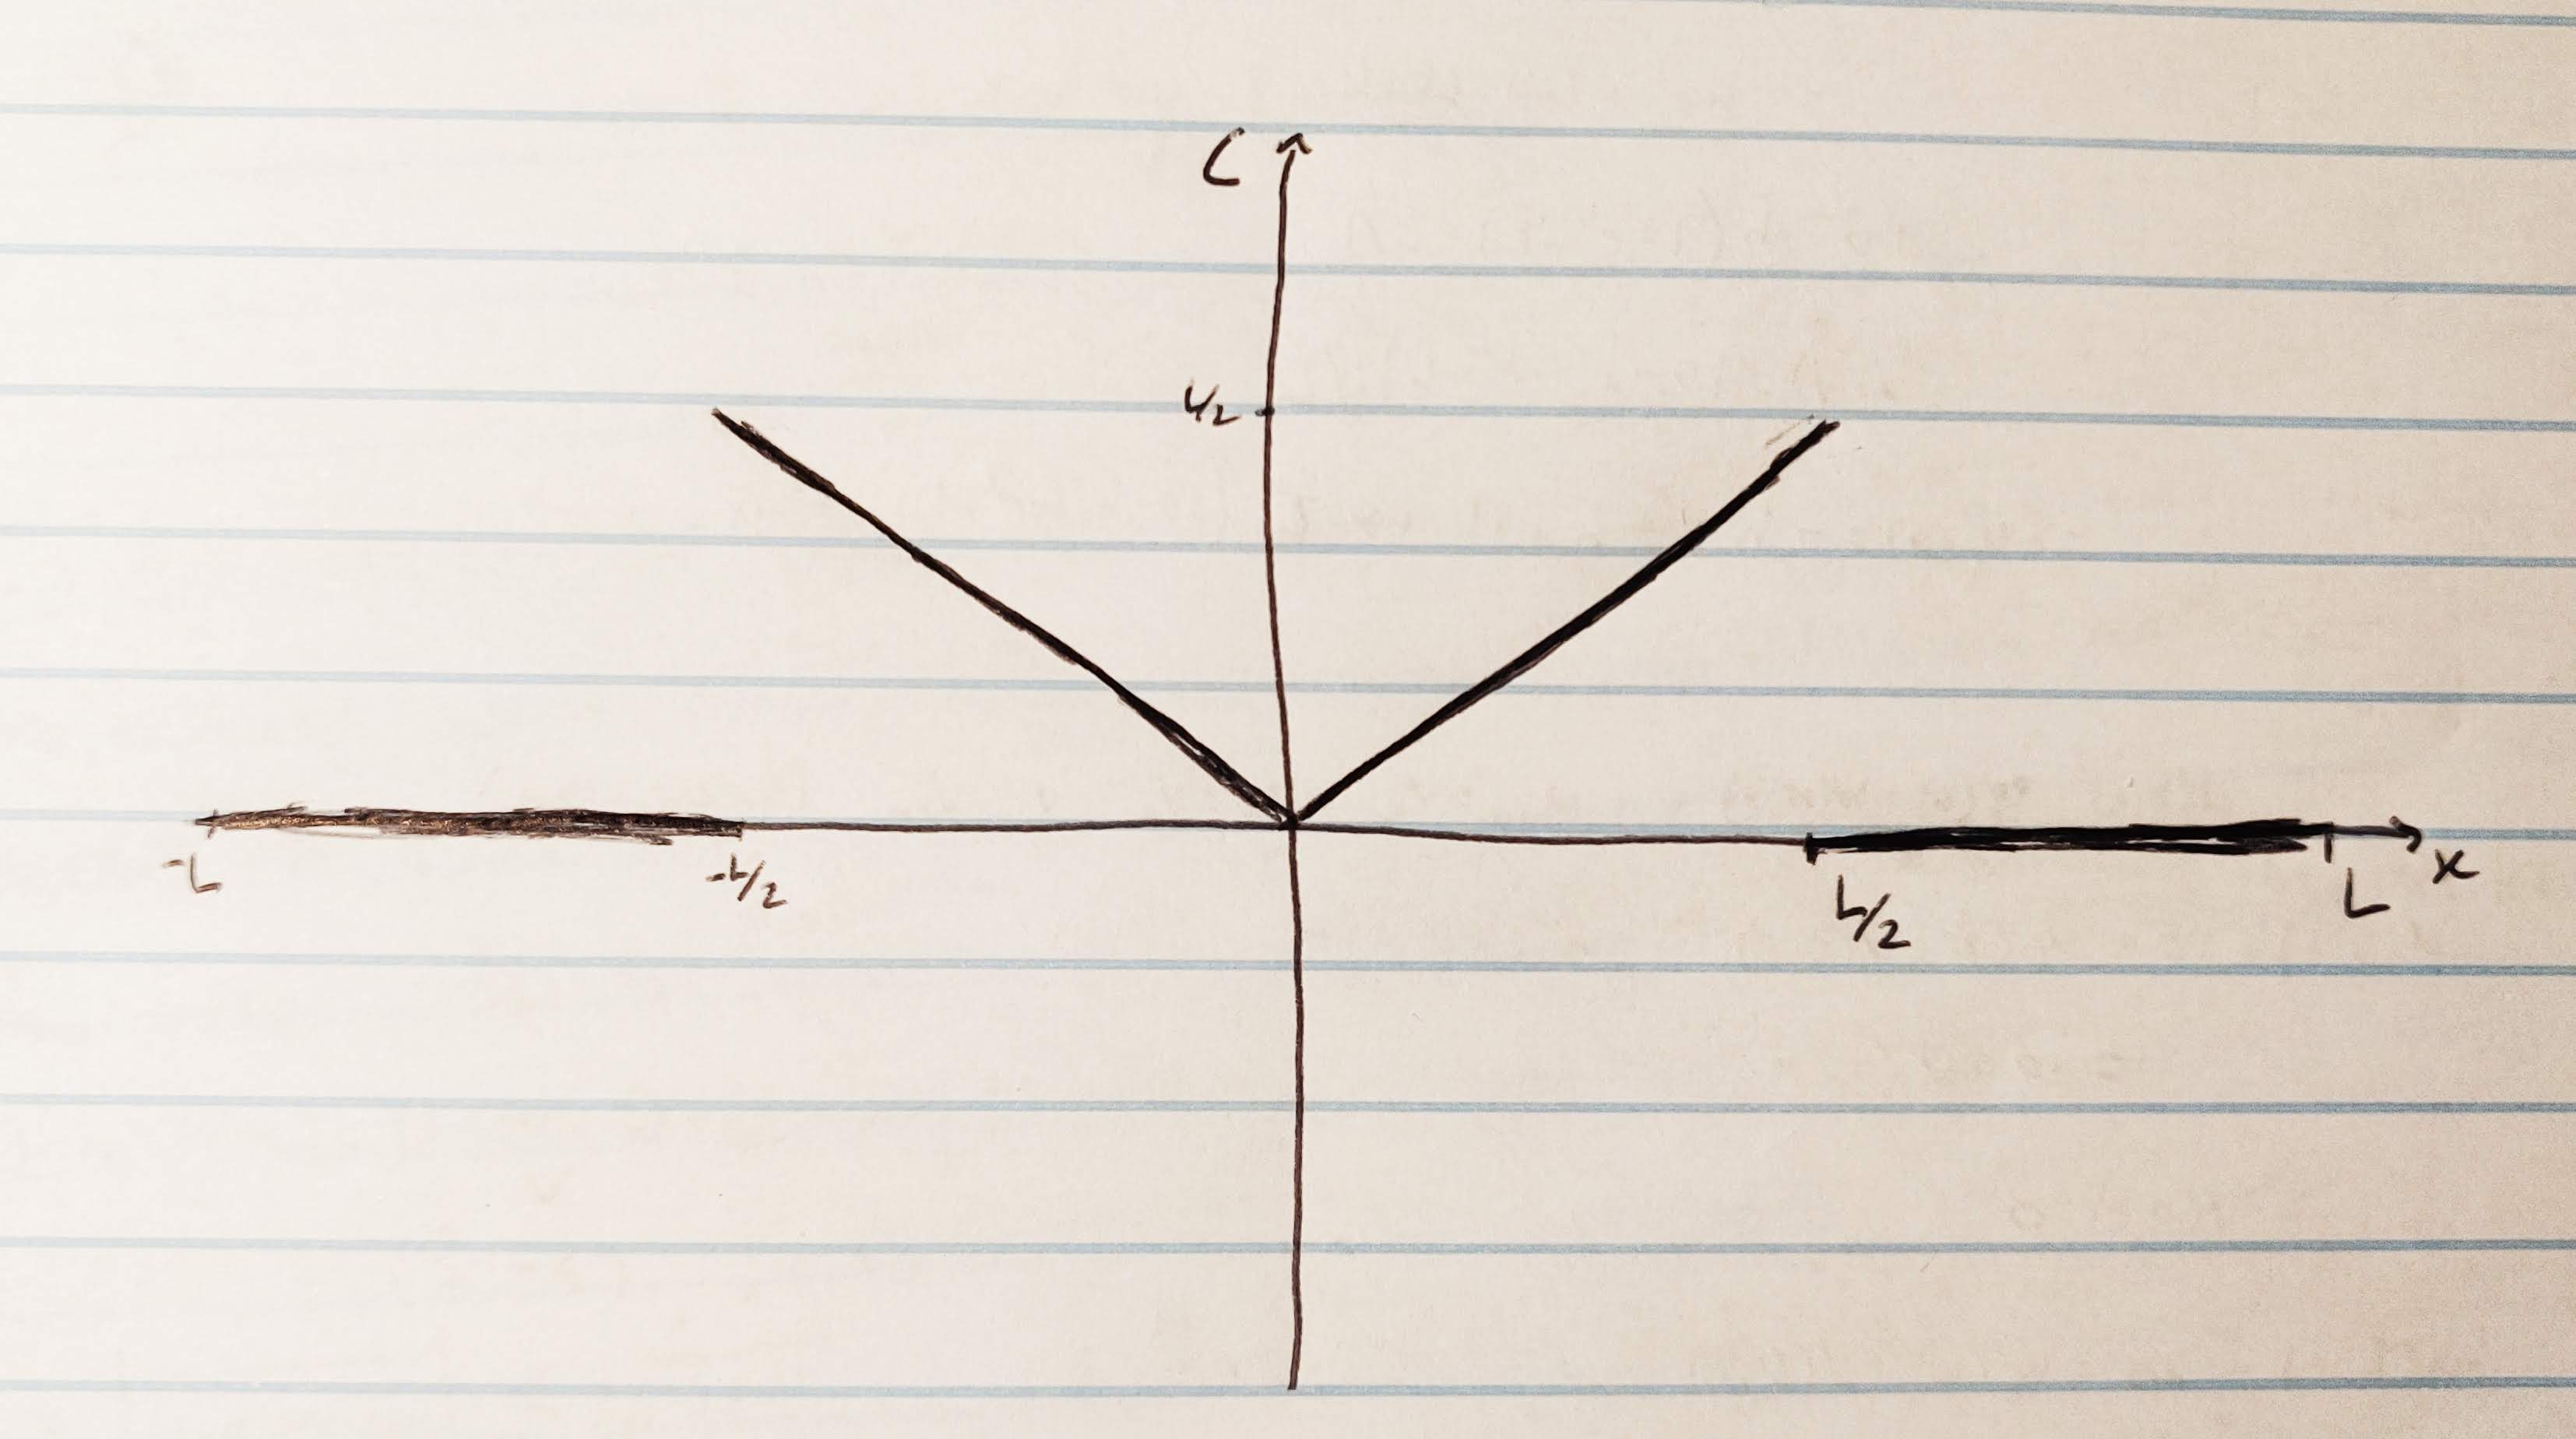 C
L/2
-L
-L/2
L/2
L
x